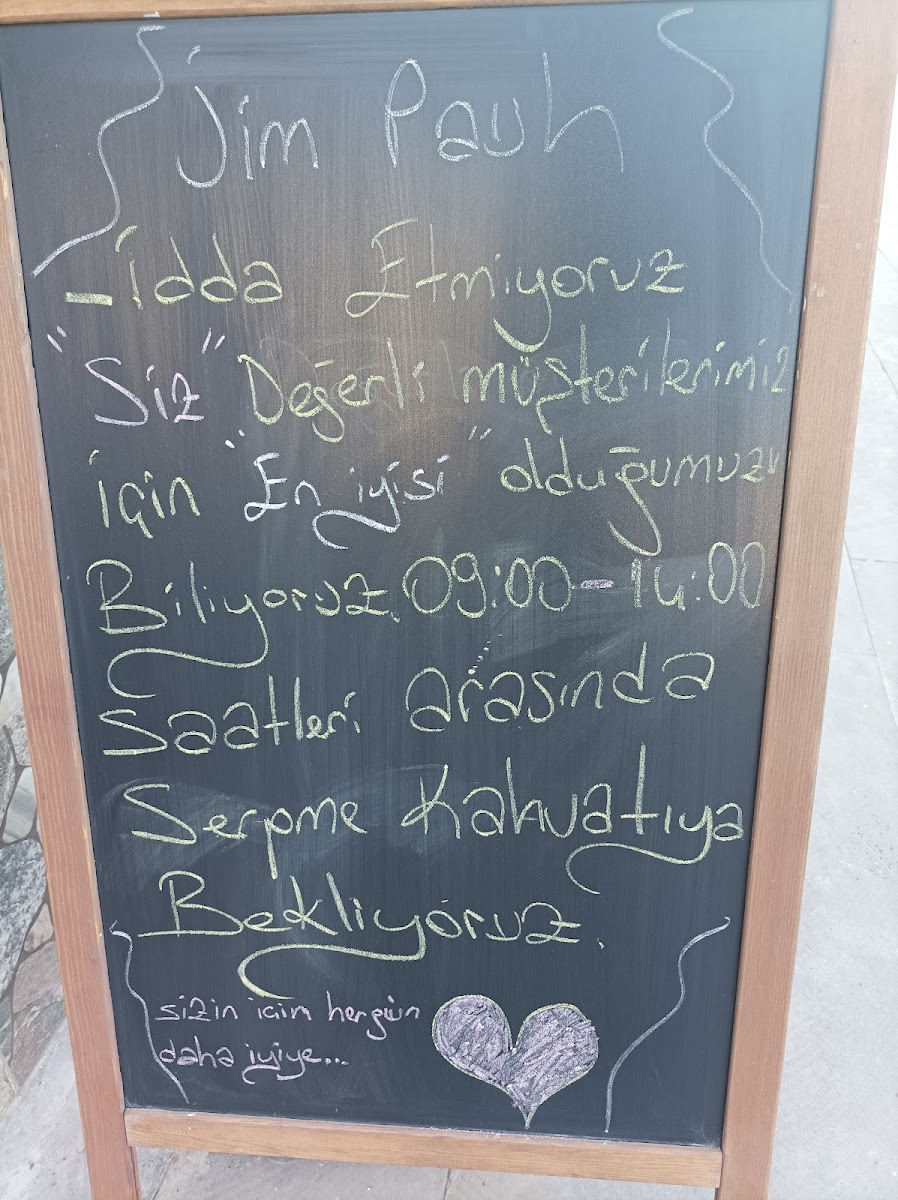 Jim Pauh
- İdda Etmiyoruz
"Siz" Değerli müşterilerimiz
için "En iyisi" olduğumuzu
Biliyoruz. 09:00 - 14:00
Saatleri arasında
Serpme Kahvatıya
Bekliyoruz.
sizin için hergün
daha iyiye...